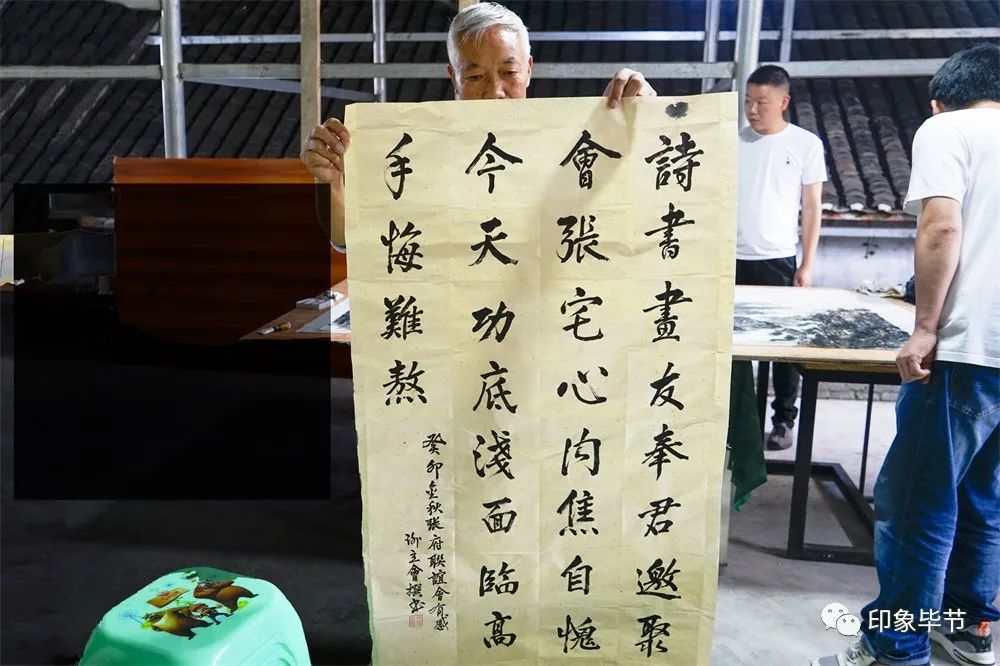 詩書畫友奉君邀聚
會張宅心内焦自愧
今天功底淺面臨高
手悔難熬
癸卯金秋张府聯誼會有感
謝立會撰书
印象毕节